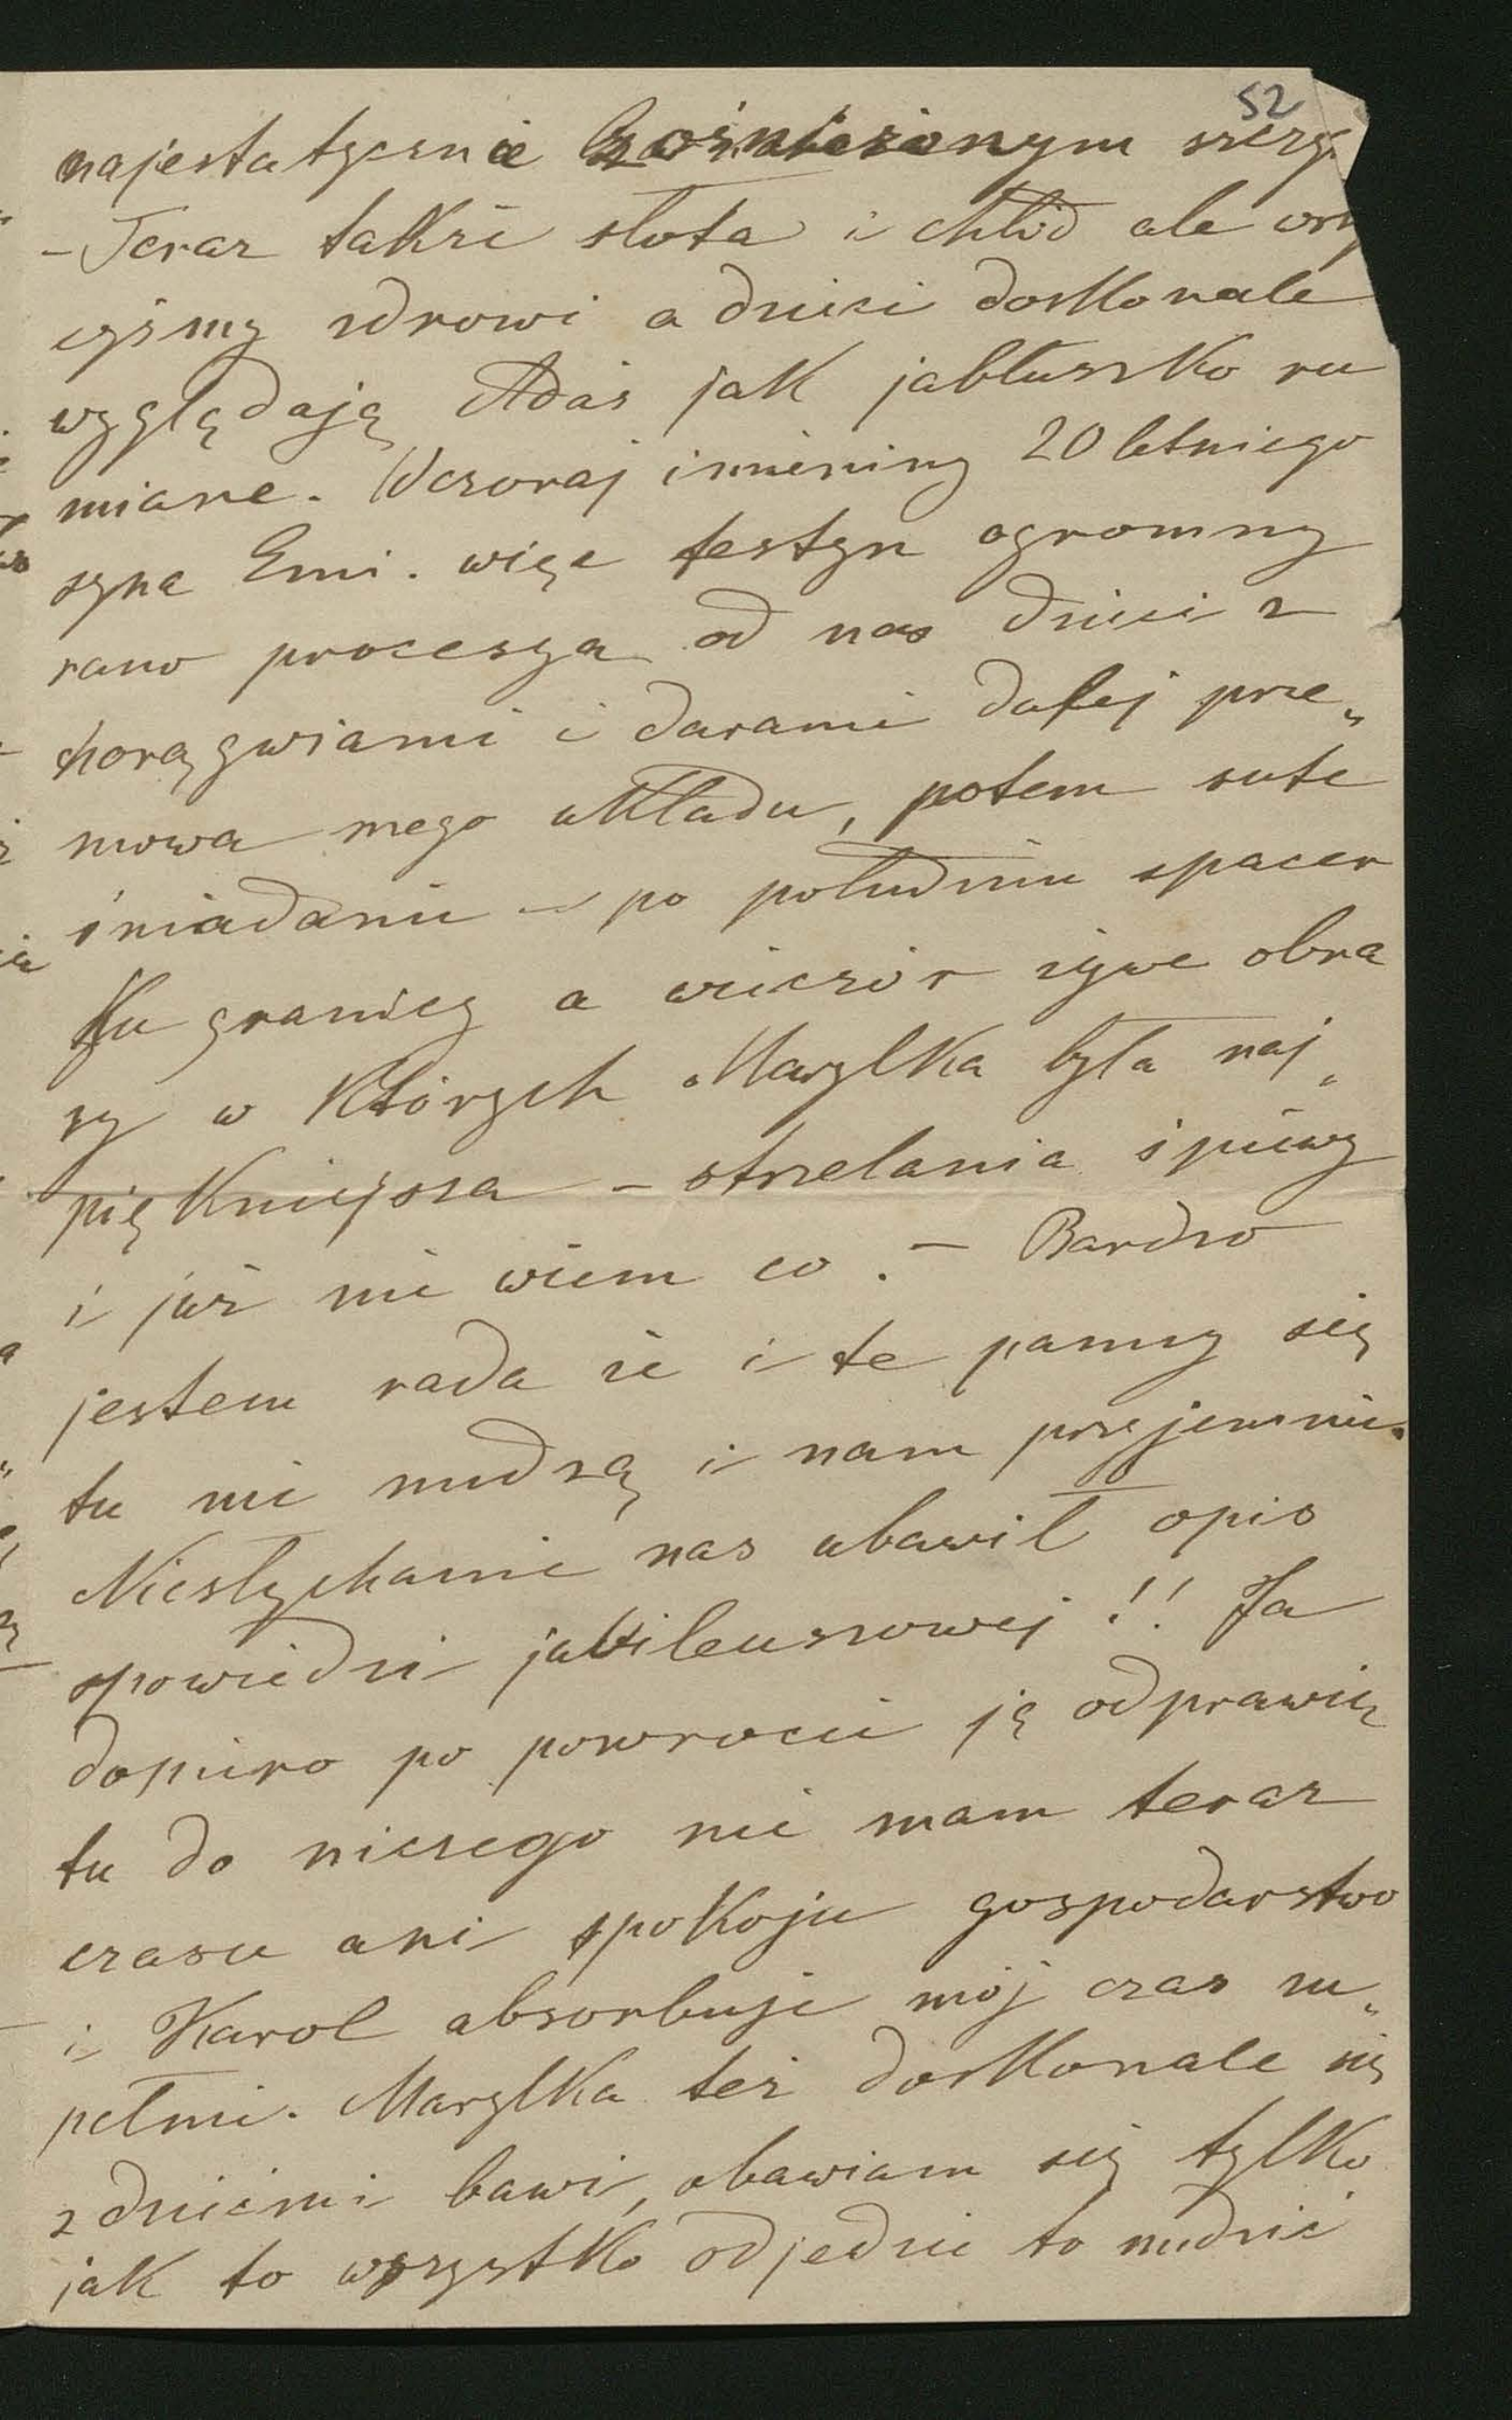 52
majestatycznie zaśnieżonym szczy
– Teraz także słota i chłód ale wszy
cyśmy zdrowi a dzieci doskonale
wyglądają Adaś jak jabłuszko ru
miane. Wczoraj imieniny 20 letniego
syna Emi. więc festyn ogromny
rano procesya od nas dzieci z
chorągwiami i darami dalej prze„
mowa mego układu, potem sute
śniadanie – po południu spacer
ku granicy a wieczór żywe obra
zy w których Marylka była naj„
piękniejsza – strzelania śpiewy
i już nie wiem co. – Bardzo
jestem rada że i te panny się
tu nie nudzą i nam przyjemnie.
Niesłychanie nas ubawił opis
spowiedzi jubileuszowej!! Ja
dopiero po powrocie ją odprawię
tu do niczego nie mam teraz
czasu ani spokoju gospodarstwo
i Karol absorbuje mój czas zu„
pełnie. Marylka też doskonale się
z dziećmi bawi, obawiam się tylko
jak to wszystko odjedzie to nudzić